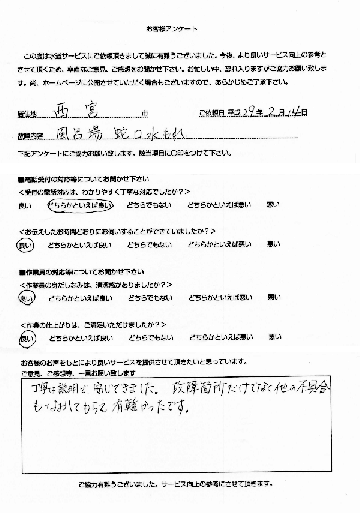 お客様アンケート
この度は水道サービスにご依頼頂きまして誠に有難うございました。今後、より良いサービス向上の参考と
させて頂くため、率直なご意見、ご感想をお聞かせ下さい。お忙しい中、恐れ入りますがご協力お願い致しま
す。尚、ホームページに公開させていただく場合もございますので、あらかじめご了承下さい。
西宮 市 ご依頼日 平成29年2月16日
風呂場 蛇口水もれ
下記アンケートにご協力お願い致します。該当項目に○印をつけて下さい。
■電話受付の対応等についてお聞かせ下さい
<受付の電話対応は、わかりやすく丁寧な対応でしたか?>
良い どちらかといえば良い どちらでもない どちらかといえば悪い 悪い
<お伝えしたお時間どおりにお伺いすることができていましたか?>
良い どちらかといえば良い どちらでもない どちらかといえば悪い 悪い
■作業員の対応等についてお聞かせ下さい
<作業員の身だしなみは、清潔感がありましたか?>
良い どちらかといえば良い どちらでもない どちらかといえば悪い 悪い
<作業の仕上がりは、ご満足いただけましたか?>
良い どちらかといえば良い どちらでもない どちらかといえば悪い 悪い
お客様のお声をもとにより良いサービスを提供させて頂きたいと思っています。
ご意見、ご感想等、一言お願い致します
丁寧に説明して頂きました。故障箇所だけでなく他の不具合
も 有難かったです。
ご協力有難うございました。サービス向上の参考にさせて頂きます。